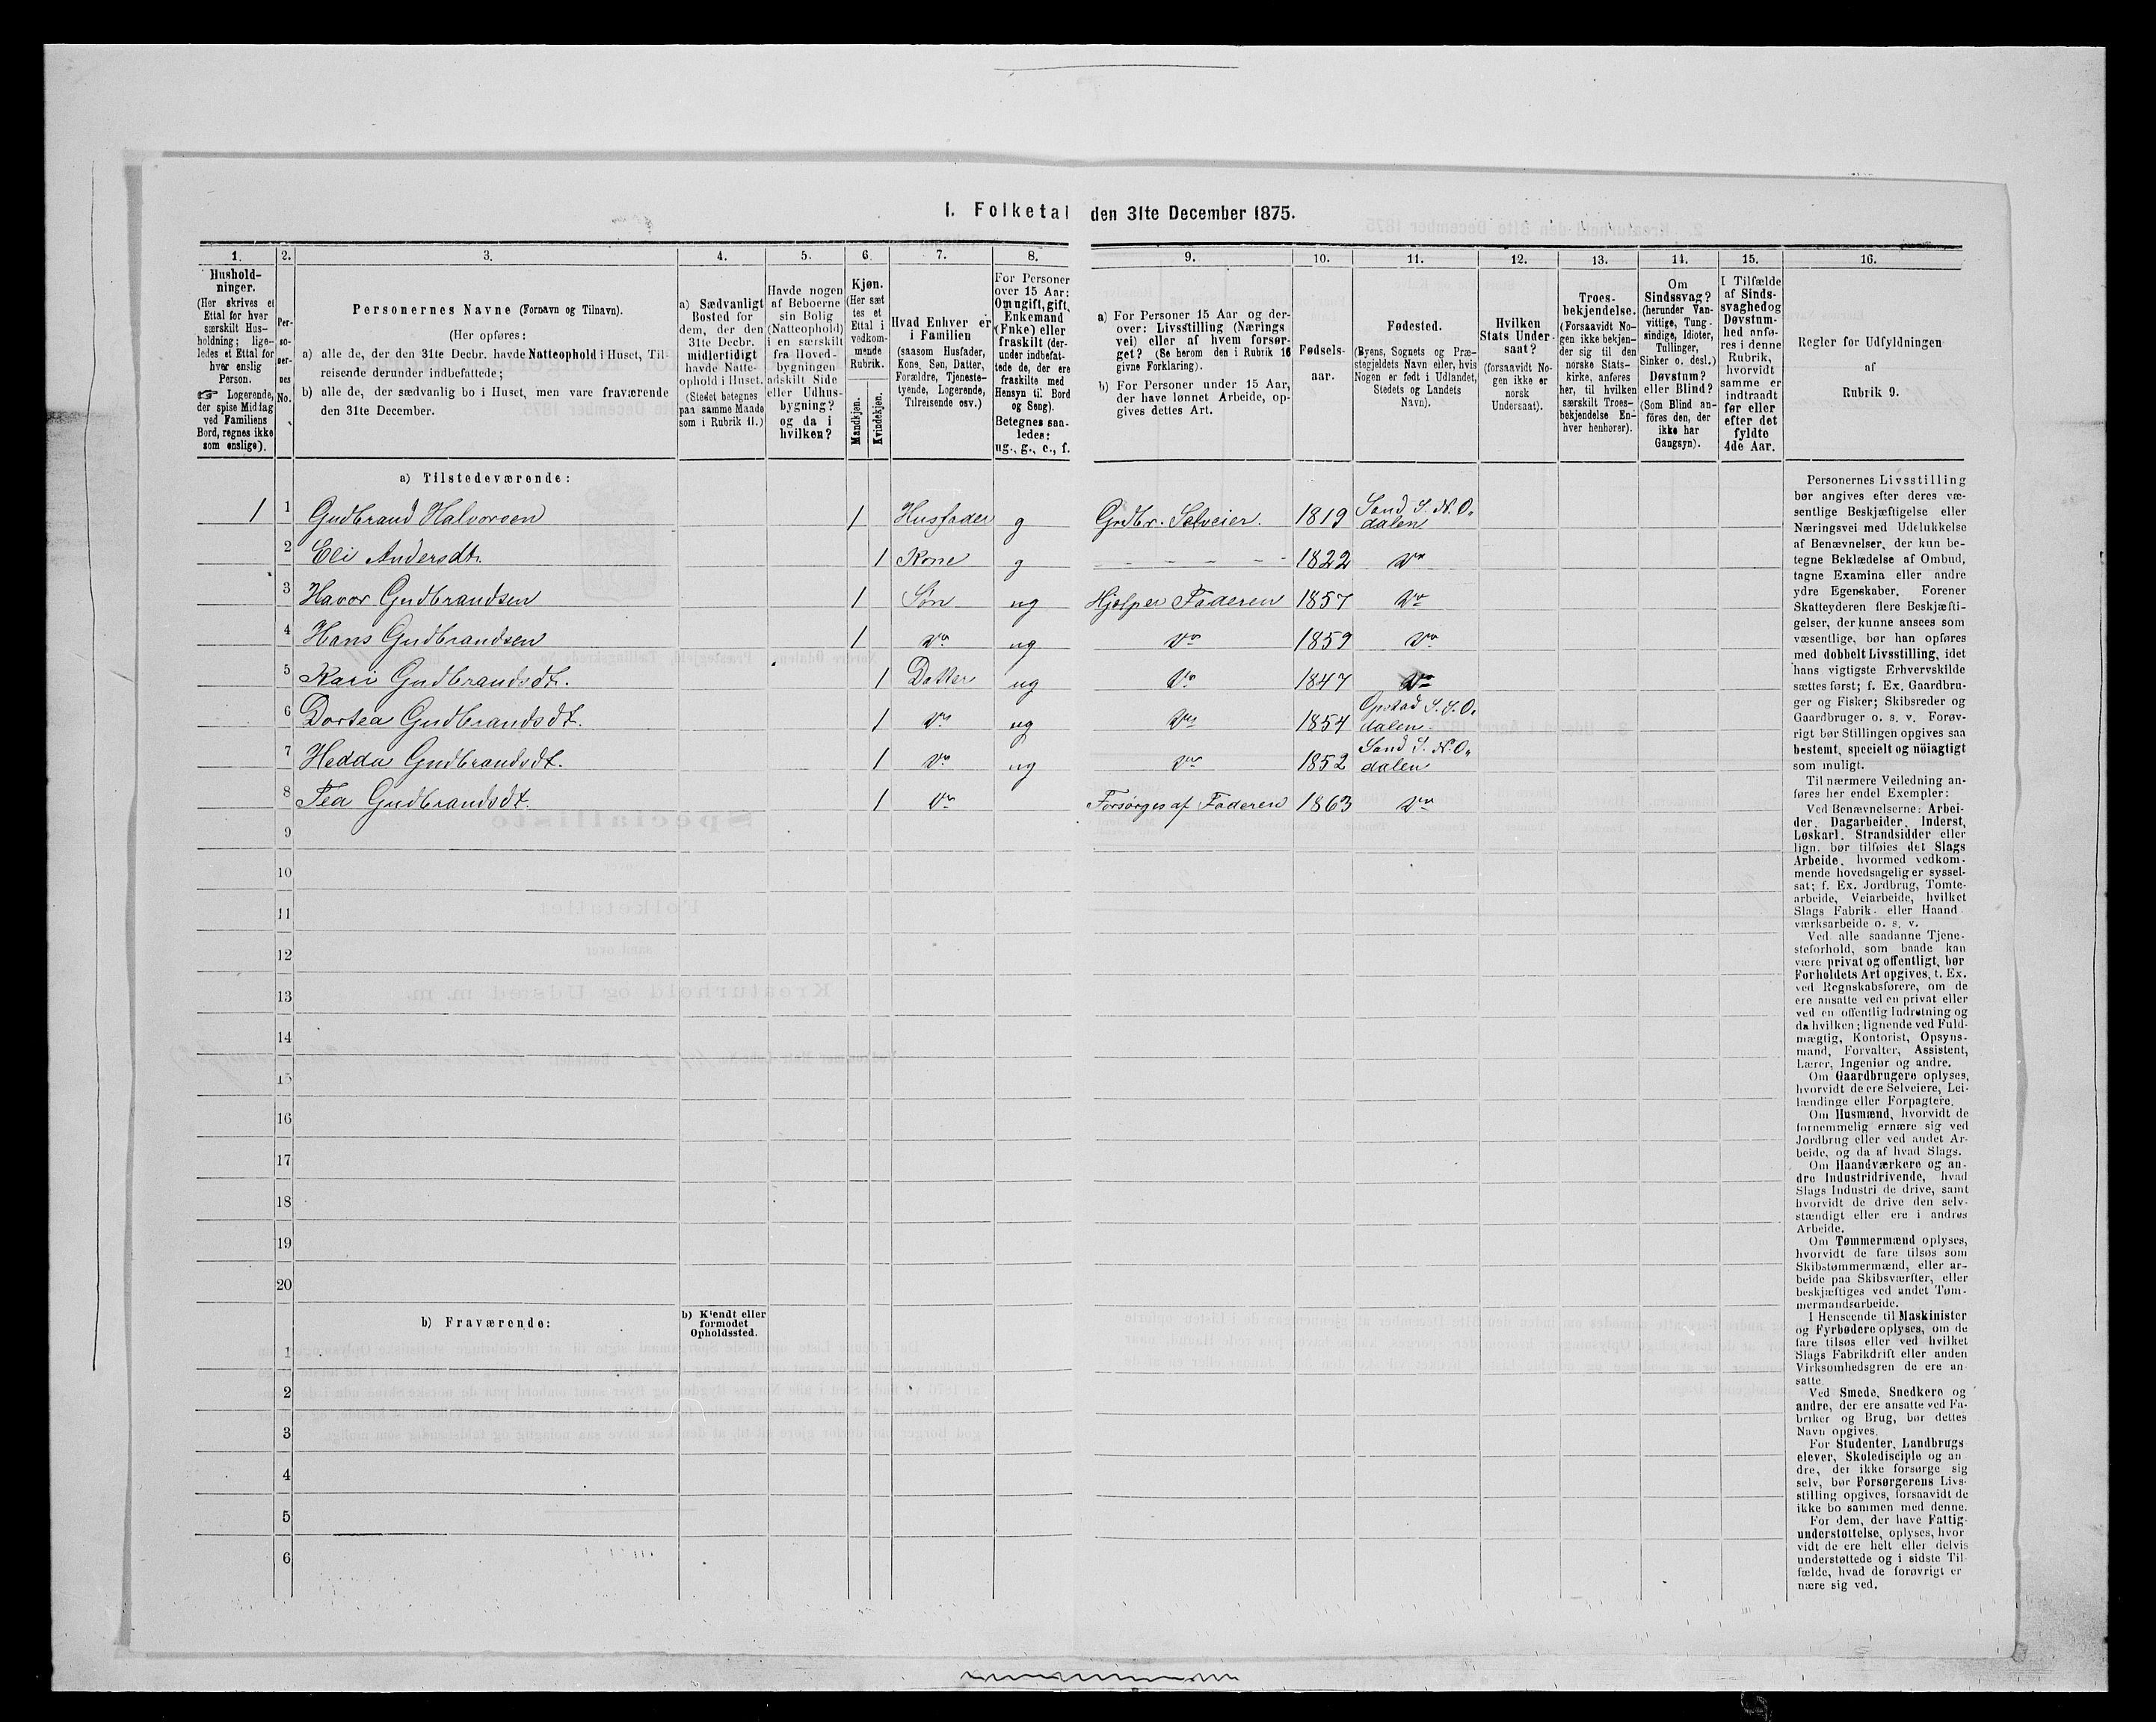 I. Folketal den 31te December 1875.
1. 2. 3. 4. 5. 6. 7. 8. 9. 10. 11. 12. 13. 14. 15. 16.
Hushold-
ninger.
(Her skrives et
Ettal for hver
særskilt Hus-
holdning; lige-
ledes et Ettal for
hver enslig
Person.
☞ Logerende,
der spise Middag
ved Familiens
Bord, regnes ikke
som enslige).
Per-
so-
ner-
nes
No.
Personernes Navne (Fornavn og Tilnavn).
(Her opføres:
a) alle de, der den 31te Decbr. havde Natteophold i Huset, Til-
reisende derunder indbefattede;
b) alle de, der sædvanlig bo i Huset, men vare fraværende
den 31te December.
a) Sædvanligt
Bosted for
dem, der den
31te Decbr.
midlertidigt
havde Natte-
ophold i Huset.
(Stedet betegnes
paa samme Maade
som i Rubrik 11.)
Havde nogen
af Beboerne
sin Bolig
(Natteophold)
i en særskilt
fra Hoved-
bygningen
adskilt Side
eller Udhus-
bygning?
og da i
hvilken?
Kjøn.
(Her sæt
tes et
Ettal i
vedkom-
mende
Rubrik.
Mandkjøn.
Kvindekjøn.
Hvad Enhver er
i Familien
(saasom Husfader,
Kone, Søn, Datter,
Forældre, Tjeneste-
tyende, Logerende,
Tilreisende osv.)
For Personer
over 15 Aar:
Om ugift, gift,
Enkemand
(Enke) eller
fraskilt (der-
under indbefat-
tede de, der ere
fraskilte med
Hensyn til Bord
og Seng).
Betegnes saa-
ledes:
ug., g., e., f.
a) For Personer 15 Aar og der-
over: Livsstilling (Nærings
vei) eller af hvem forsør-
get? (Se herom den i Rubrik 16
givne Forklaring).
b) For Personer under 15 Aar,
der have lønnet Arbeide, op-
gives dettes Art.
Fødsels-
aar.
Fødested.
(Byens, Sognets og Præ-
stegjeldets Navn eller, hvis
Nogen er født i Udlandet,
Stedets og Landets
Navn).
Hvilken
Stats Under-
saat?
(forsaavidt No-
gen ikke er
norsk
Undersaat).
Troes-
bekjendelse.
(Forsaavidt No-
gen ikke bekjen-
der sig til den
norske Stats-
kirke, anføres
her, til hvilken
særskilt Troes-
bekjendelse En-
hver henhører).
Om
Sindssvag?
(herunder Van-
vittige, Tung-
sindige, Idioter,
Tullinger,
Sinker o. desl.)
Døvstum?
eller Blind?
(Som Blind an-
føres den, der
ikke har
Gangsyn).
I Tilfælde
af Sinds-
svaghed og
Døvstum-
hed anfø-
res i denne
Rubrik,
hvorvidt
samme er
indtraadt
før eller
efter det
fyldte
4de Aar.
Regler for Udfyldningen
af
Rubrik 9.
a) Tilstedeværende:
1 1 Gudbrand Halvorsen 1 Husfader g Grdbr. Selveier. 1819 Sand S. N. O.
dalen
2 Eli Andersdt. 1 Kone g - - - - - 1822 Do
3 Havor Gudbrandsen 1 Søn ug Hjælper Faderen 1857 Do
4 Hans Gudbrandsen 1 Do ug Do 1859 Do
5 Kari Gudbrandsdt. 1 Datter ug Do 1847 Do
6 Dortea Gudbrandsdt. 1 Do ug Do 1854 Opstad S. S. O.
dalen
7 Hedda Gudbrandsdt. 1 Do ug Do 1852 Sand S. N. O.
dalen
8 Tea Gudbrandsdt. 1 Do Forsørges af Faderen 1863 Do
9
10
11
12
13
14
15
16
17
18
19
20
b) Fraværende: b) Kjendt eller
formodet
Opholdssted.
1
2
3
4
5
6
Personernes Livsstilling
bør angives efter deres væ-
sentlige Beskjæftigelse eller
Næringsvei med Udelukkelse
af Benævnelser, der kun be-
tegne Beklædelse af Ombud,
tagne Examina eller andre
ydre Egenskaber. Forener
Skatteyderen flere Beskjæfti-
gelser, der kunne ansees som
væsentlige, bør han opføres
med dobbelt Livsstilling, idet
hans vigtigste Erhvervskilde
sættes først; f. Ex. Gaardbru-
ger og Fisker; Skibsreder og
Gaardbruger o. s. v. Forøv-
rigt bør Stillingen opgives saa
bestemt, specielt og nöiagtigt
som muligt.
Til nærmere Veiledning an-
føres her endel Exempler:
Ved Benævnelserne: Arbei-
der, Dagarbeider, Inderst,
Løskarl, Strandsidder eller
lign. bør tilføies det Slags
Arbeide, hvormed vedkom-
mende hovedsagelig er syssel-
sat; f. Ex. Jordbrug, Tomte-
arbeide, Veiarbeide, hvilket
Slags Fabrik- eller Haand
værksarbeide o. s. v.
Ved alle saadanne Tjene-
steforhold, som baade kan
være privat og offentligt, bør
Forholdets Art opgives, t. Ex.
ved Regnskabsførere, om de
ere ansatte ved en privat eller
ved en offentlig Indretning og
da hvilken; lignende ved Fuld-
mægtig, Kontorist, Opsyns-
mand, Forvalter, Assistent,
Lærer, Ingeniør og andre.
Om Gaardbrugere oplyses,
hvorvidt de ere Selveiere, Lei-
lændinge eller Forpagtere.
Om Husmænd, hvorvidt de
fornemmelig ernære sig ved
Jordbrug eller ved andet Ar-
beide, og da af hvad Slags.
Om Haandværkere og an-
dre Industridrivende, hvad
Slags Industri de drive, samt
hvorvidt de drive den selv-
stændigt eller ere i andres
Arbeide.
Om Tømmermænd oplyses,
hvorvidt de fare tilsøs som
Skibstømmermænd, eller ar-
beide paa Skibsværfter, eller
beskjæftiges ved andet Tøm-
mermandsarbeide.
I Henseende til Maskinister
og Fyrbødere oplyses, om de
fare tilsøs eller ved hvilket
Slags Fabrikdrift eller anden
Virksomhedsgren de ere an-
satte
Ved Smede, Snedkere og
andre, der ere ansatte ved Fa-
briker og Brug, bør dettes
Navn opgives.
For Studenter, Landbrugs
elever, Skoledisciple og an
dre, der ikke forsørge sig
selv, bør Forsørgerens Livs-
stilling opgives, forsaavidt de
ikke bo sammen med denne.
For dem, der have Fattig-
understøttelse, oplyses, hvor
vidt de ere helt eller delvis
understøttede og i sidste Til-
fælde, hvad de forøvrigt er
nære sig ved.